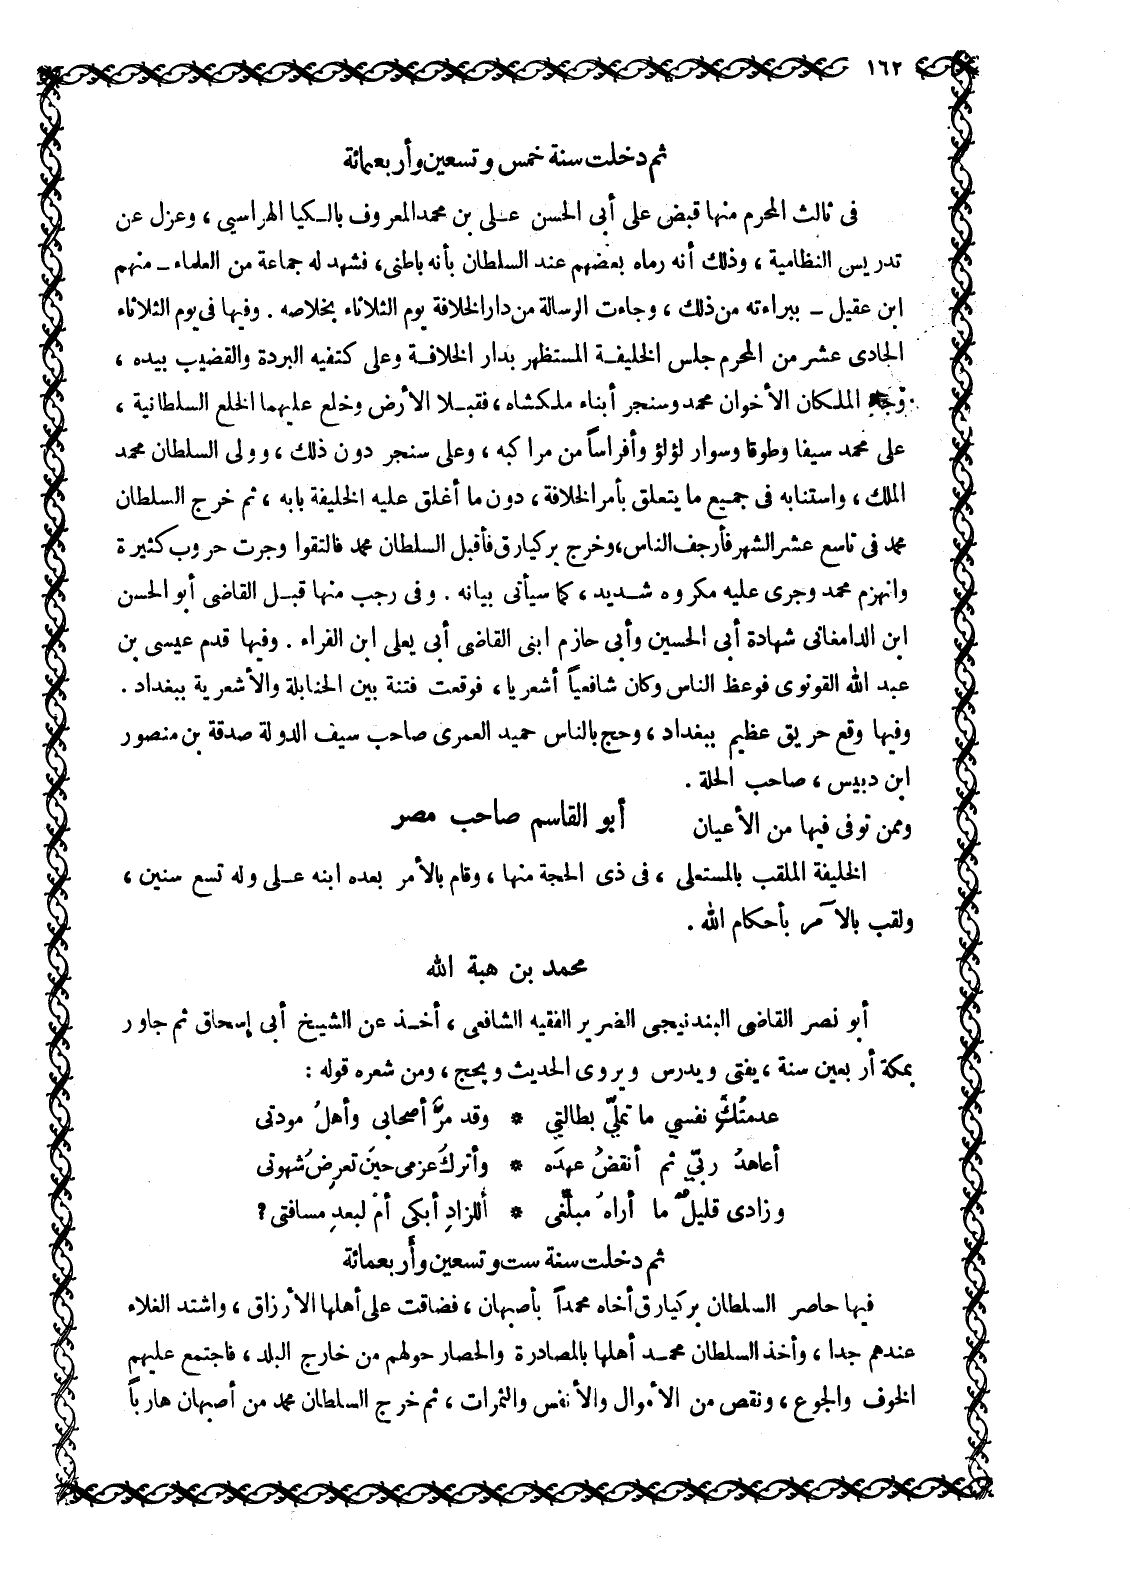 ١٦٢
ثم دخلت سنة خمس وتسعين وأربعمائة
فى ثالث المحرم منها قبض على أبى الحسن على بن محمد المعروف بالكيا الهراسى ، وعزل عن
تدريس النظامية ، وذلك أنه رماه بعضهم عند السلطان بأنه باطنى، فشهد له جماعة من العلماء ـ منهم
ابن عقيل ـ ببراءته من ذلك ، وجاءت الرسالة من دار الخلافة يوم الثلاثاء بخلاصه . وفيها فى يوم الثلاثاء
الحادى عشر من المحرم جلس الخليفة المستظهر بدار الخلافة وعلى كتفيه البردة والقضيب بيده ،
وجاء الملكان الأخوان محمد وسنجر أبناء ملكشاه ، فقبلا الأرض وخلع عليهما الخلع السلطانية ،
على محمد سيفا وطوقا وسوار لؤلؤ وأفراساً من مراكبه ، وعلى سنجر دون ذلك ، وولى السلطان محمد
الملك ، واستنابه فى جميع ما يتعلق بأمر الخلافة ، دون ما أغلق عليه الخليفة بابه ، ثم خرج السلطان
محمد فى تاسع عشر الشهر فأرجف الناس، وخرج بركيارق فأقبل السلطان محمد فالتقوا وجرت حروب كثيرة
وانهزم محمد وجرى عليه مكروه شديد ، كما سيأتى بيانه . وفى رجب منها قبل القاضى أبو الحسن
ابن الدامغانى شهادة أبى الحسين وأبى حازم ابنى القاضى أبى يعلى ابن الفراء . وفيها قدم عيسى بن
عبد الله القونوى فوعظ الناس وكان شافعياً أشعريا ، فوقعت فتنة بين الحنابلة والأشعرية ببغداد .
وفيها وقع حريق عظيم ببغداد ، وحج بالناس حميد العمرى صاحب سيف الدولة صدقة بن منصور
ابن دبيس ، صاحب الحلة .
وممن توفى فيها من الأعيان أبو القاسم صاحب مصر
الخليفة الملقب بالمستعلى ، فى ذى الحجة منها ، وقام بالأمر بعده ابنه على وله تسع سنين ،
ولقب بالآمر بأحكام الله .
محمد بن هبة الله
أبو نصر القاضى البندنيجى الضرير الفقيه الشافعى ، أخذ عن الشيخ أبى إسحاق ثم جاور
بمكة أربعين سنة ، يفتى ويدرس ويروى الحديث ويحج ، ومن شعره قوله :
عدمتُكِ نفسي ما تملّي بطالتي * وقد مرَّ أصحابى وأهلُ مودتى
أعاهدُ ربّي ثم أنقضُ عهدَه * وأتركُ عزمى حينَ تعرضُ شهوتى
وزادى قليلٌ ما أراهُ مبلّغى * أللزادِ أبكى أمْ لبعدِ مسافتى ؟
ثم دخلت سنة ست وتسعين وأربعمائة
فيها حاصر السلطان بركيارق أخاه محمداً بأصبهان ، فضاقت على أهلها الأرزاق ، واشتد الغلاء
عندهم جدا ، وأخذ السلطان محمد أهلها بالمصادرة والحصار حولهم من خارج البلد ، فاجتمع عليهم
الخوف والجوع ، ونقص من الأموال والأنفس والثمرات ، ثم خرج السلطان محمد من أصبهان هارباً